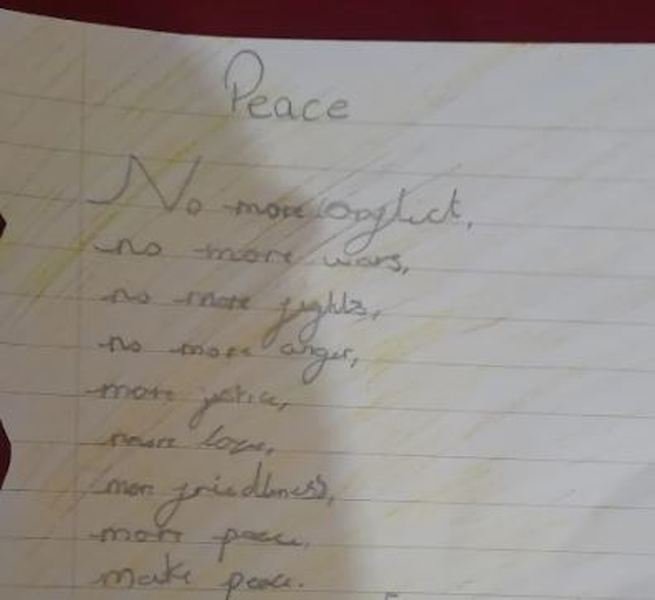 Peace
No more conflict,
no more wars,
no more fights,
no more anger,
more justice,
more love,
more friedlness,
more peace,
make peace.